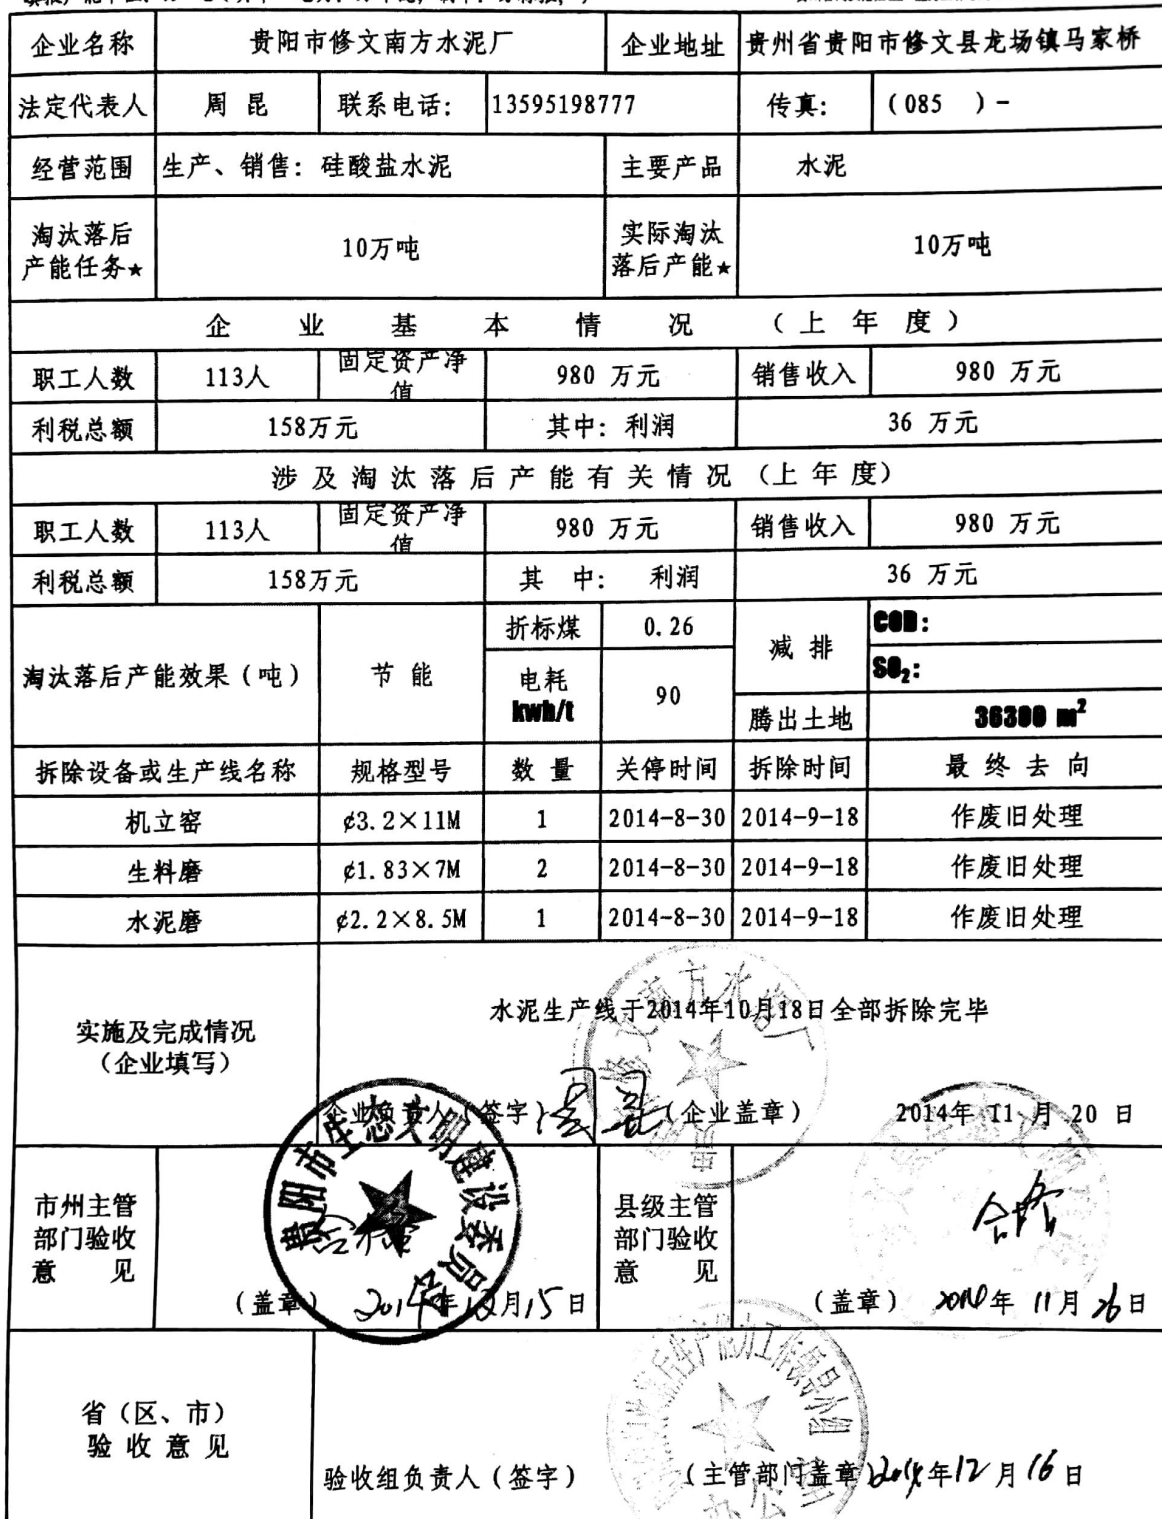 企业名称 贵阳市修文南方水泥厂 企业地址 贵州省贵阳市修文县龙场镇马家桥
法定代表人 周 昆 联系电话: 13595198777 传真: (085 )-
经营范围 生产、销售: 硅酸盐水泥 主要产品 水泥
淘汰落后 实际淘汰
产能任务★ 10万吨 落后产能★ 10万吨
企 业 基 本 情 况 (上 年 度)
职工人数 113人 固定资产净值 980 万元 销售收入 980 万元
利税总额 158万元 其中: 利润 36 万元
涉 及 淘 汰 落 后 产 能 有 关 情 况 (上 年 度)
职工人数 113人 固定资产净值 980 万元 销售收入 980 万元
利税总额 158万元 其 中: 利润 36 万元
淘汰落后产能效果(吨) 节 能 折标煤 0.26 减 排 COD:
SO₂:
电耗 kwh/t 90 腾出土地 36300 m²
拆除设备或生产线名称 规格型号 数 量 关停时间 拆除时间 最 终 去 向
机立窑 ¢3.2×11M 1 2014-8-30 2014-9-18 作废旧处理
生料磨 ¢1.83×7M 2 2014-8-30 2014-9-18 作废旧处理
水泥磨 ¢2.2×8.5M 1 2014-8-30 2014-9-18 作废旧处理
实施及完成情况
(企业填写)
水泥生产线于2014年10月18日全部拆除完毕
企业负责人(签字) 周昆 (企业盖章) 2014年 11 月 20 日
市州主管
部门验收
意 见
贵阳市生态文明建设委员会
合格
(盖章) 2014年12月15日
县级主管
部门验收
意 见
合格
(盖章) 2014年 11月 26日
省(区、市)
验 收 意 见
验收组负责人(签字) (主管部门盖章) 2014年12月16日